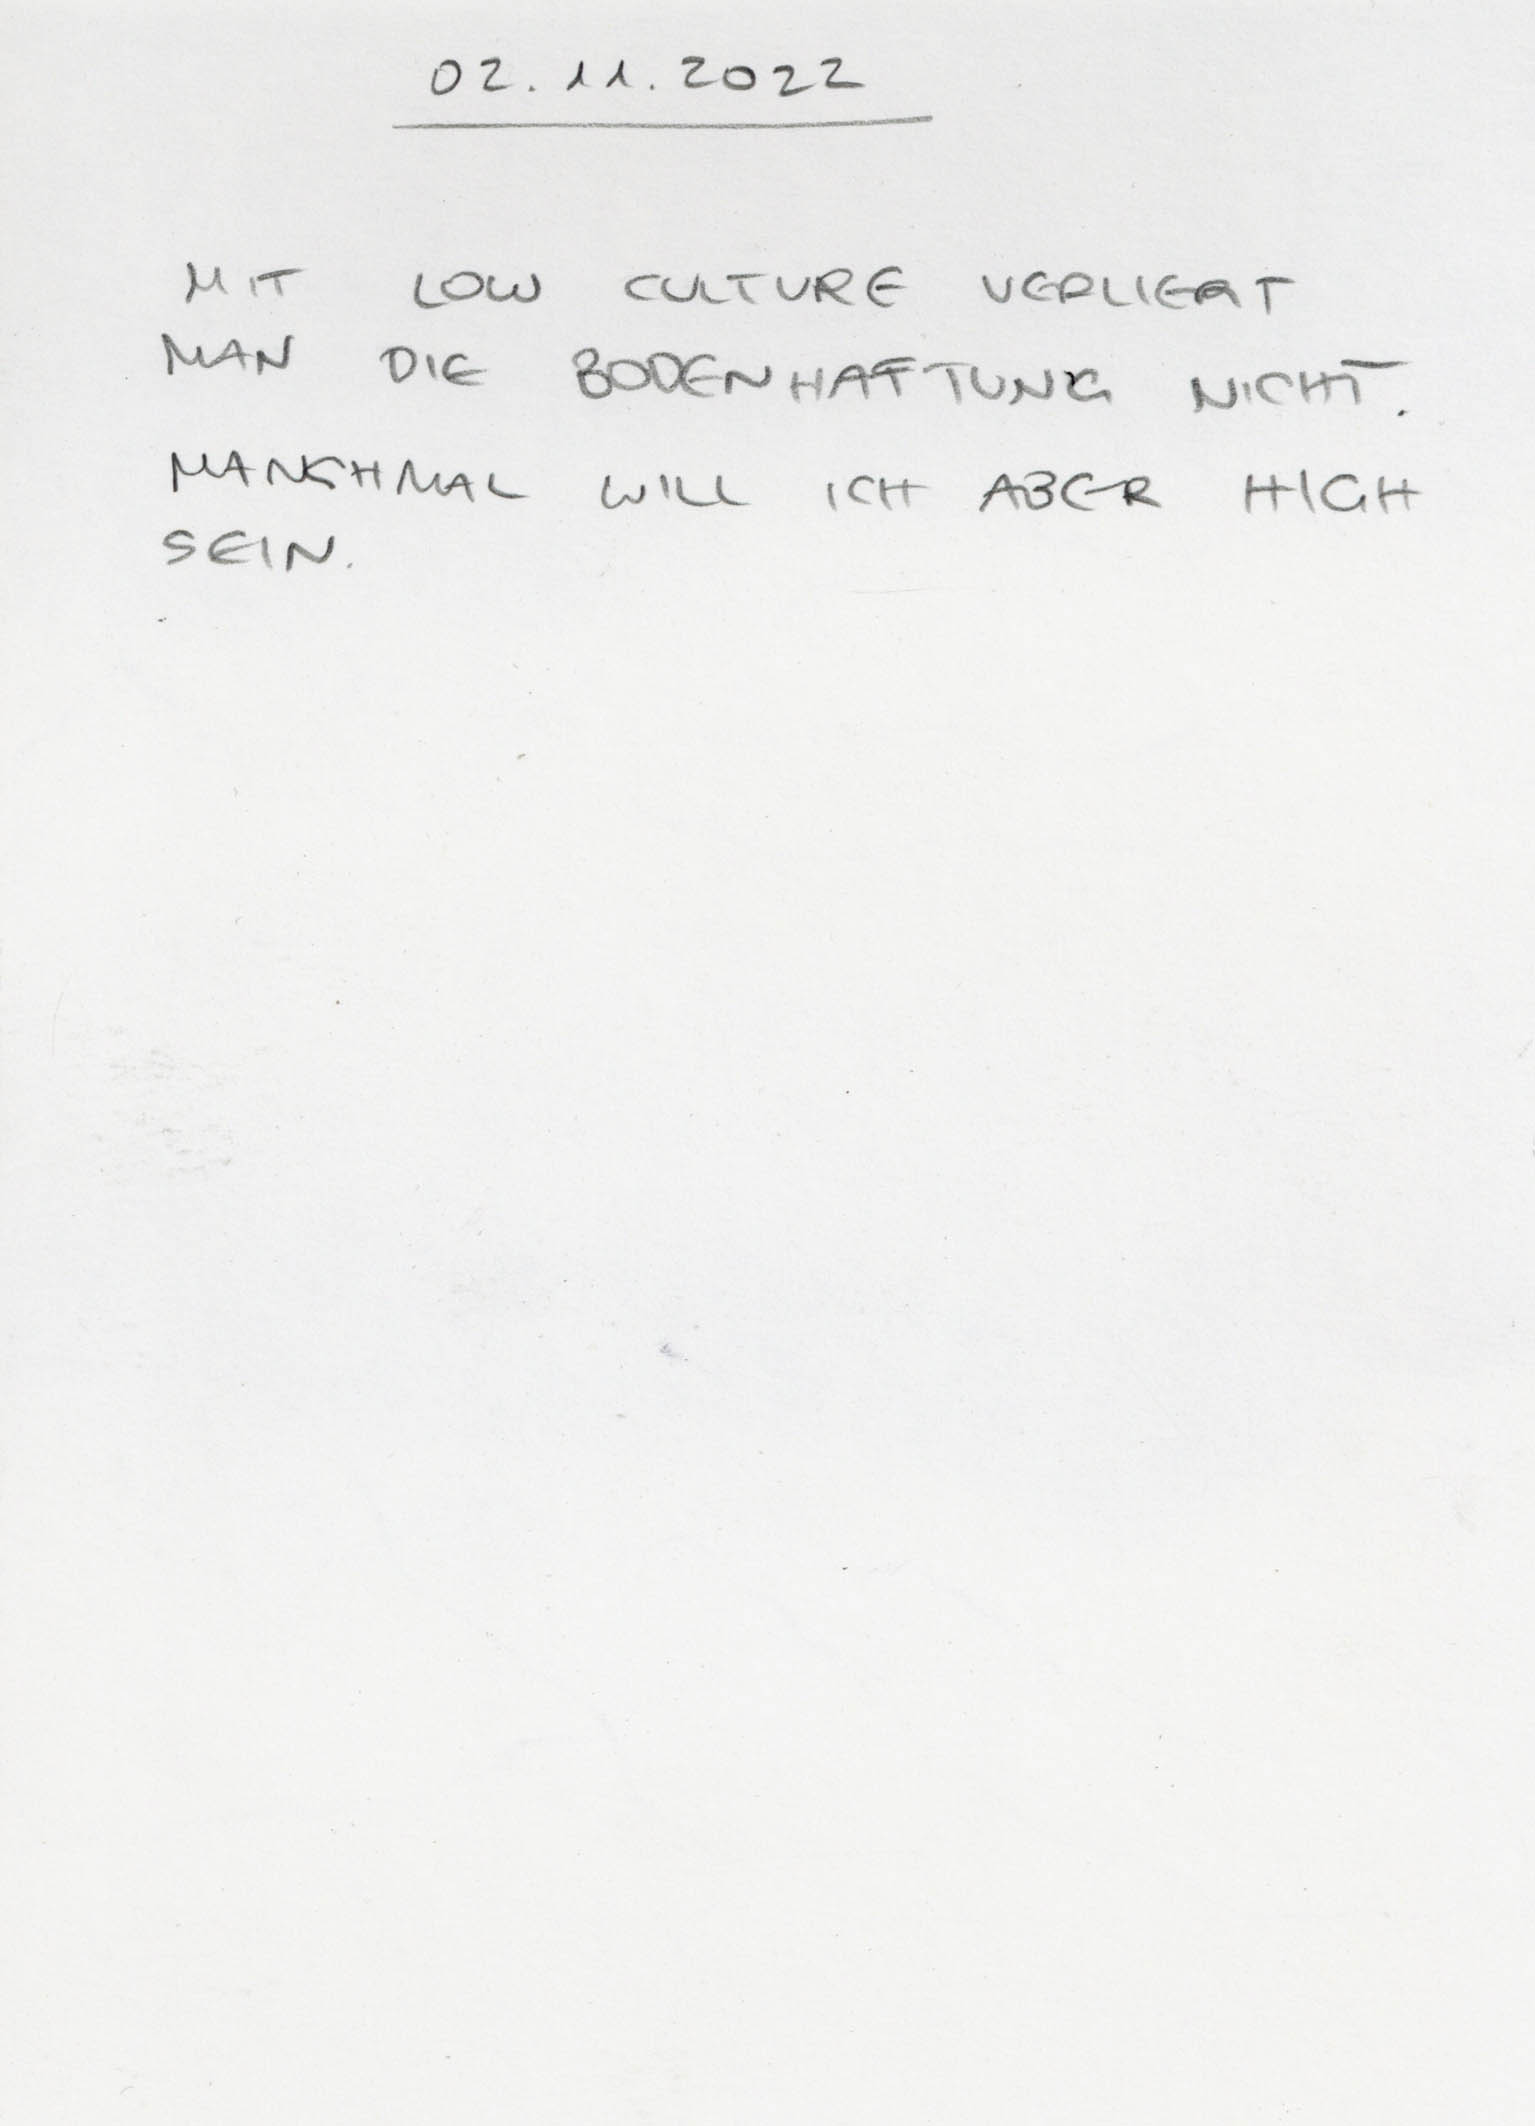 02.11.2022
MIT LOW CULTURE VERLIERT
MAN DIE BODENHAFTUNG NICHT.
MANCHMAL WILL ICH ABER HIGH
SEIN.